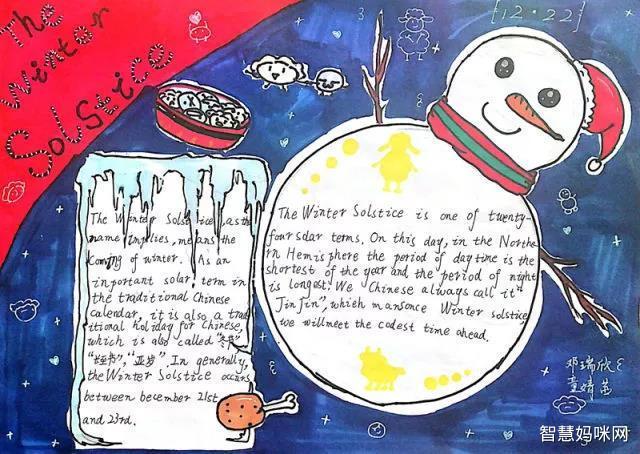 The
Winter
Solstice
[12·22]
The Winter Solstice, as the
name implies, means the
Coming of winter. As an
inportant solar term in
the traditional Chinese
calendar, it is also a trad
itional holiday for Chinese,
which is also called "冬节"
"亚岁". In generally,
the Winter Solstice occurs
between becember 21st
and 23rd.
The Winter Solstice is one of twenty-
four solar terms. On this day, in the Northe
rn Hemisphere the period of daytime is the
shortest of the year and the period of night
is longest. We Chinese always call it "
Jin Jin", which mansonce Winter solstice,
we will meet the codest time ahead.
邓瑞欣
童婧
智慧妈咪网